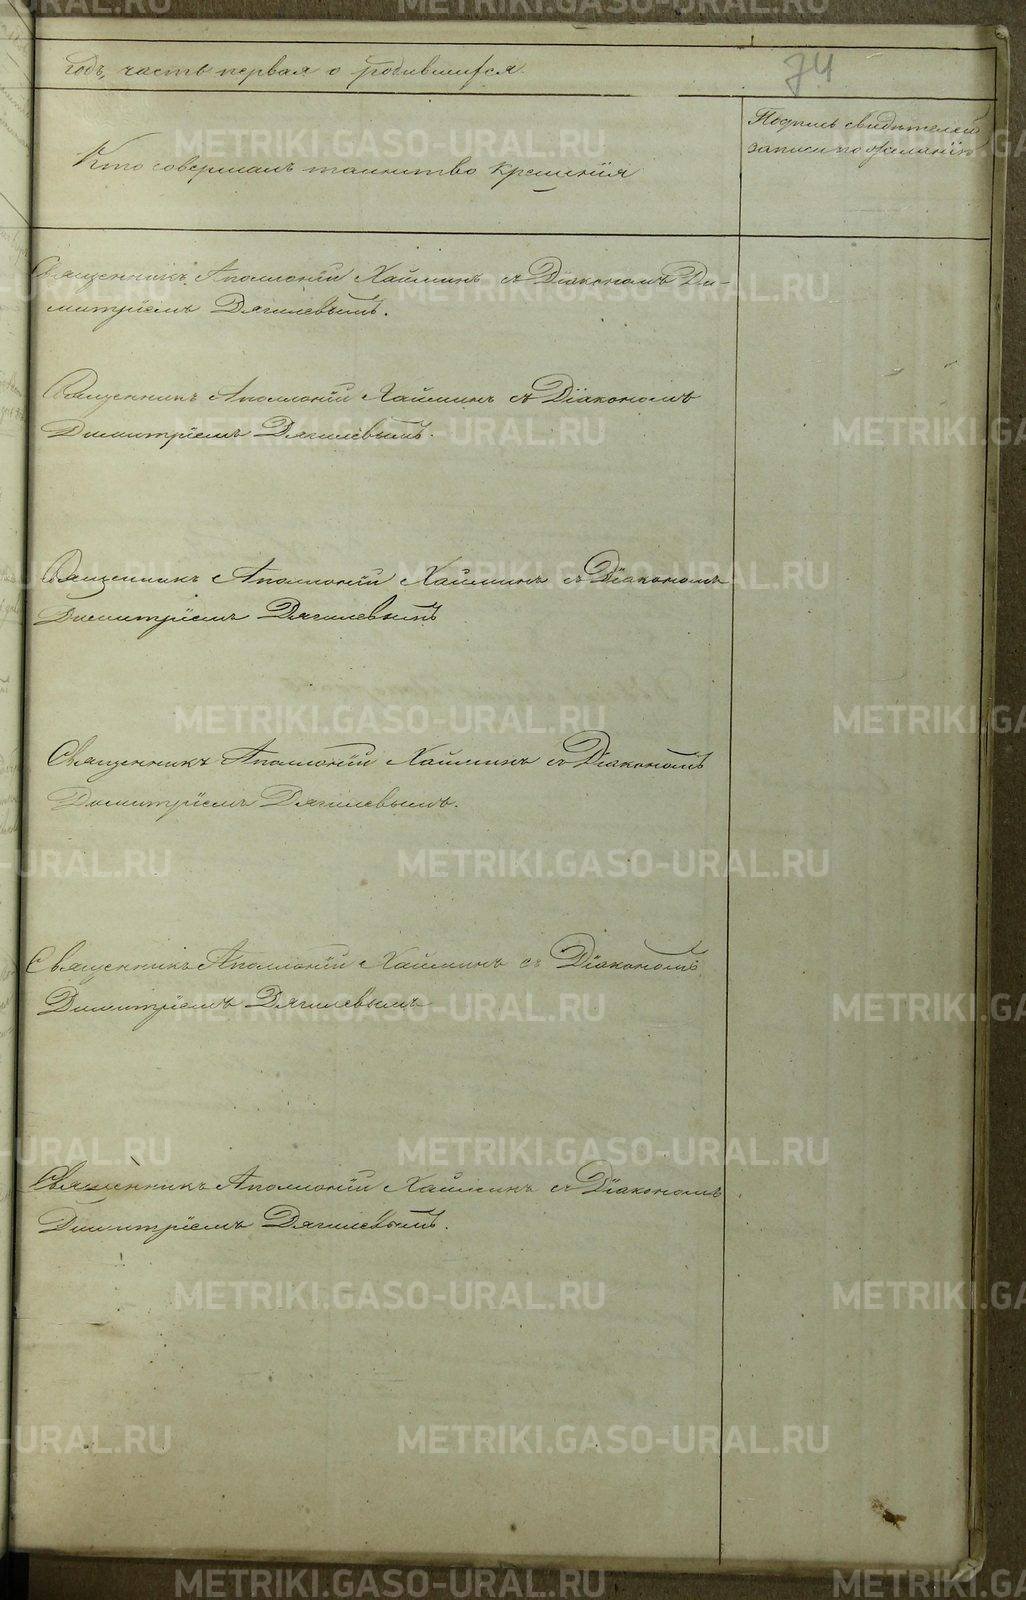 74
годъ, часть первая о родившихся.
Кто совершалъ таинство крещенія
Подпись свидѣтелей
записи по желанію
Священникъ Аполлоній Хаймин с Діакономъ Ди-
митріемъ Дягилевымъ.
Священникъ Аполлоній Хаймин с Діакономъ
Димитріемъ Дягилевымъ.
Священникъ Аполлоній Хаймин с Діакономъ
Димитріемъ Дягилевымъ
Священникъ Аполлоній Хаймин с Діакономъ
Димитріемъ Дягилевымъ.
Священникъ Аполлоній Хаймин съ Діакономъ
Димитріемъ Дягилевымъ
Священникъ Аполлоній Хаймин с Діакономъ
Димитріемъ Дягилевымъ.
METRIKI.GASO-URAL.RU